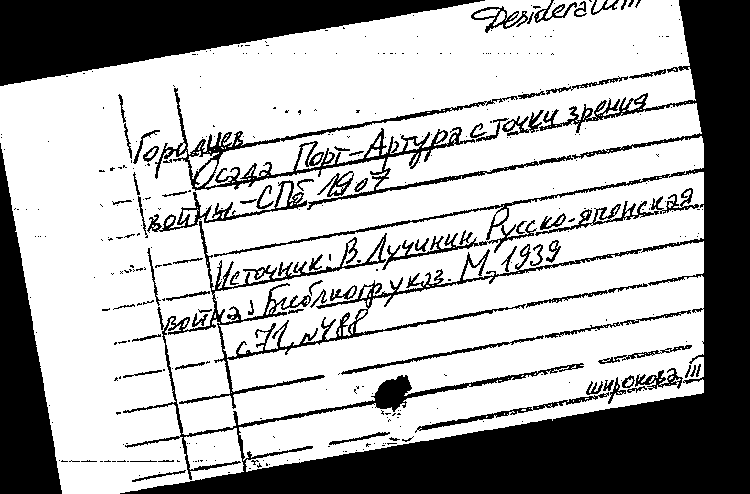 Desideratum
Городцев
Осада Порт-Артура с точки зрения
войны. - СПб, 1907
Источник: В. Лучинин. Русско-японская
война: Библиогр. указ. М., 1939
с. 71, №488
широкова, III